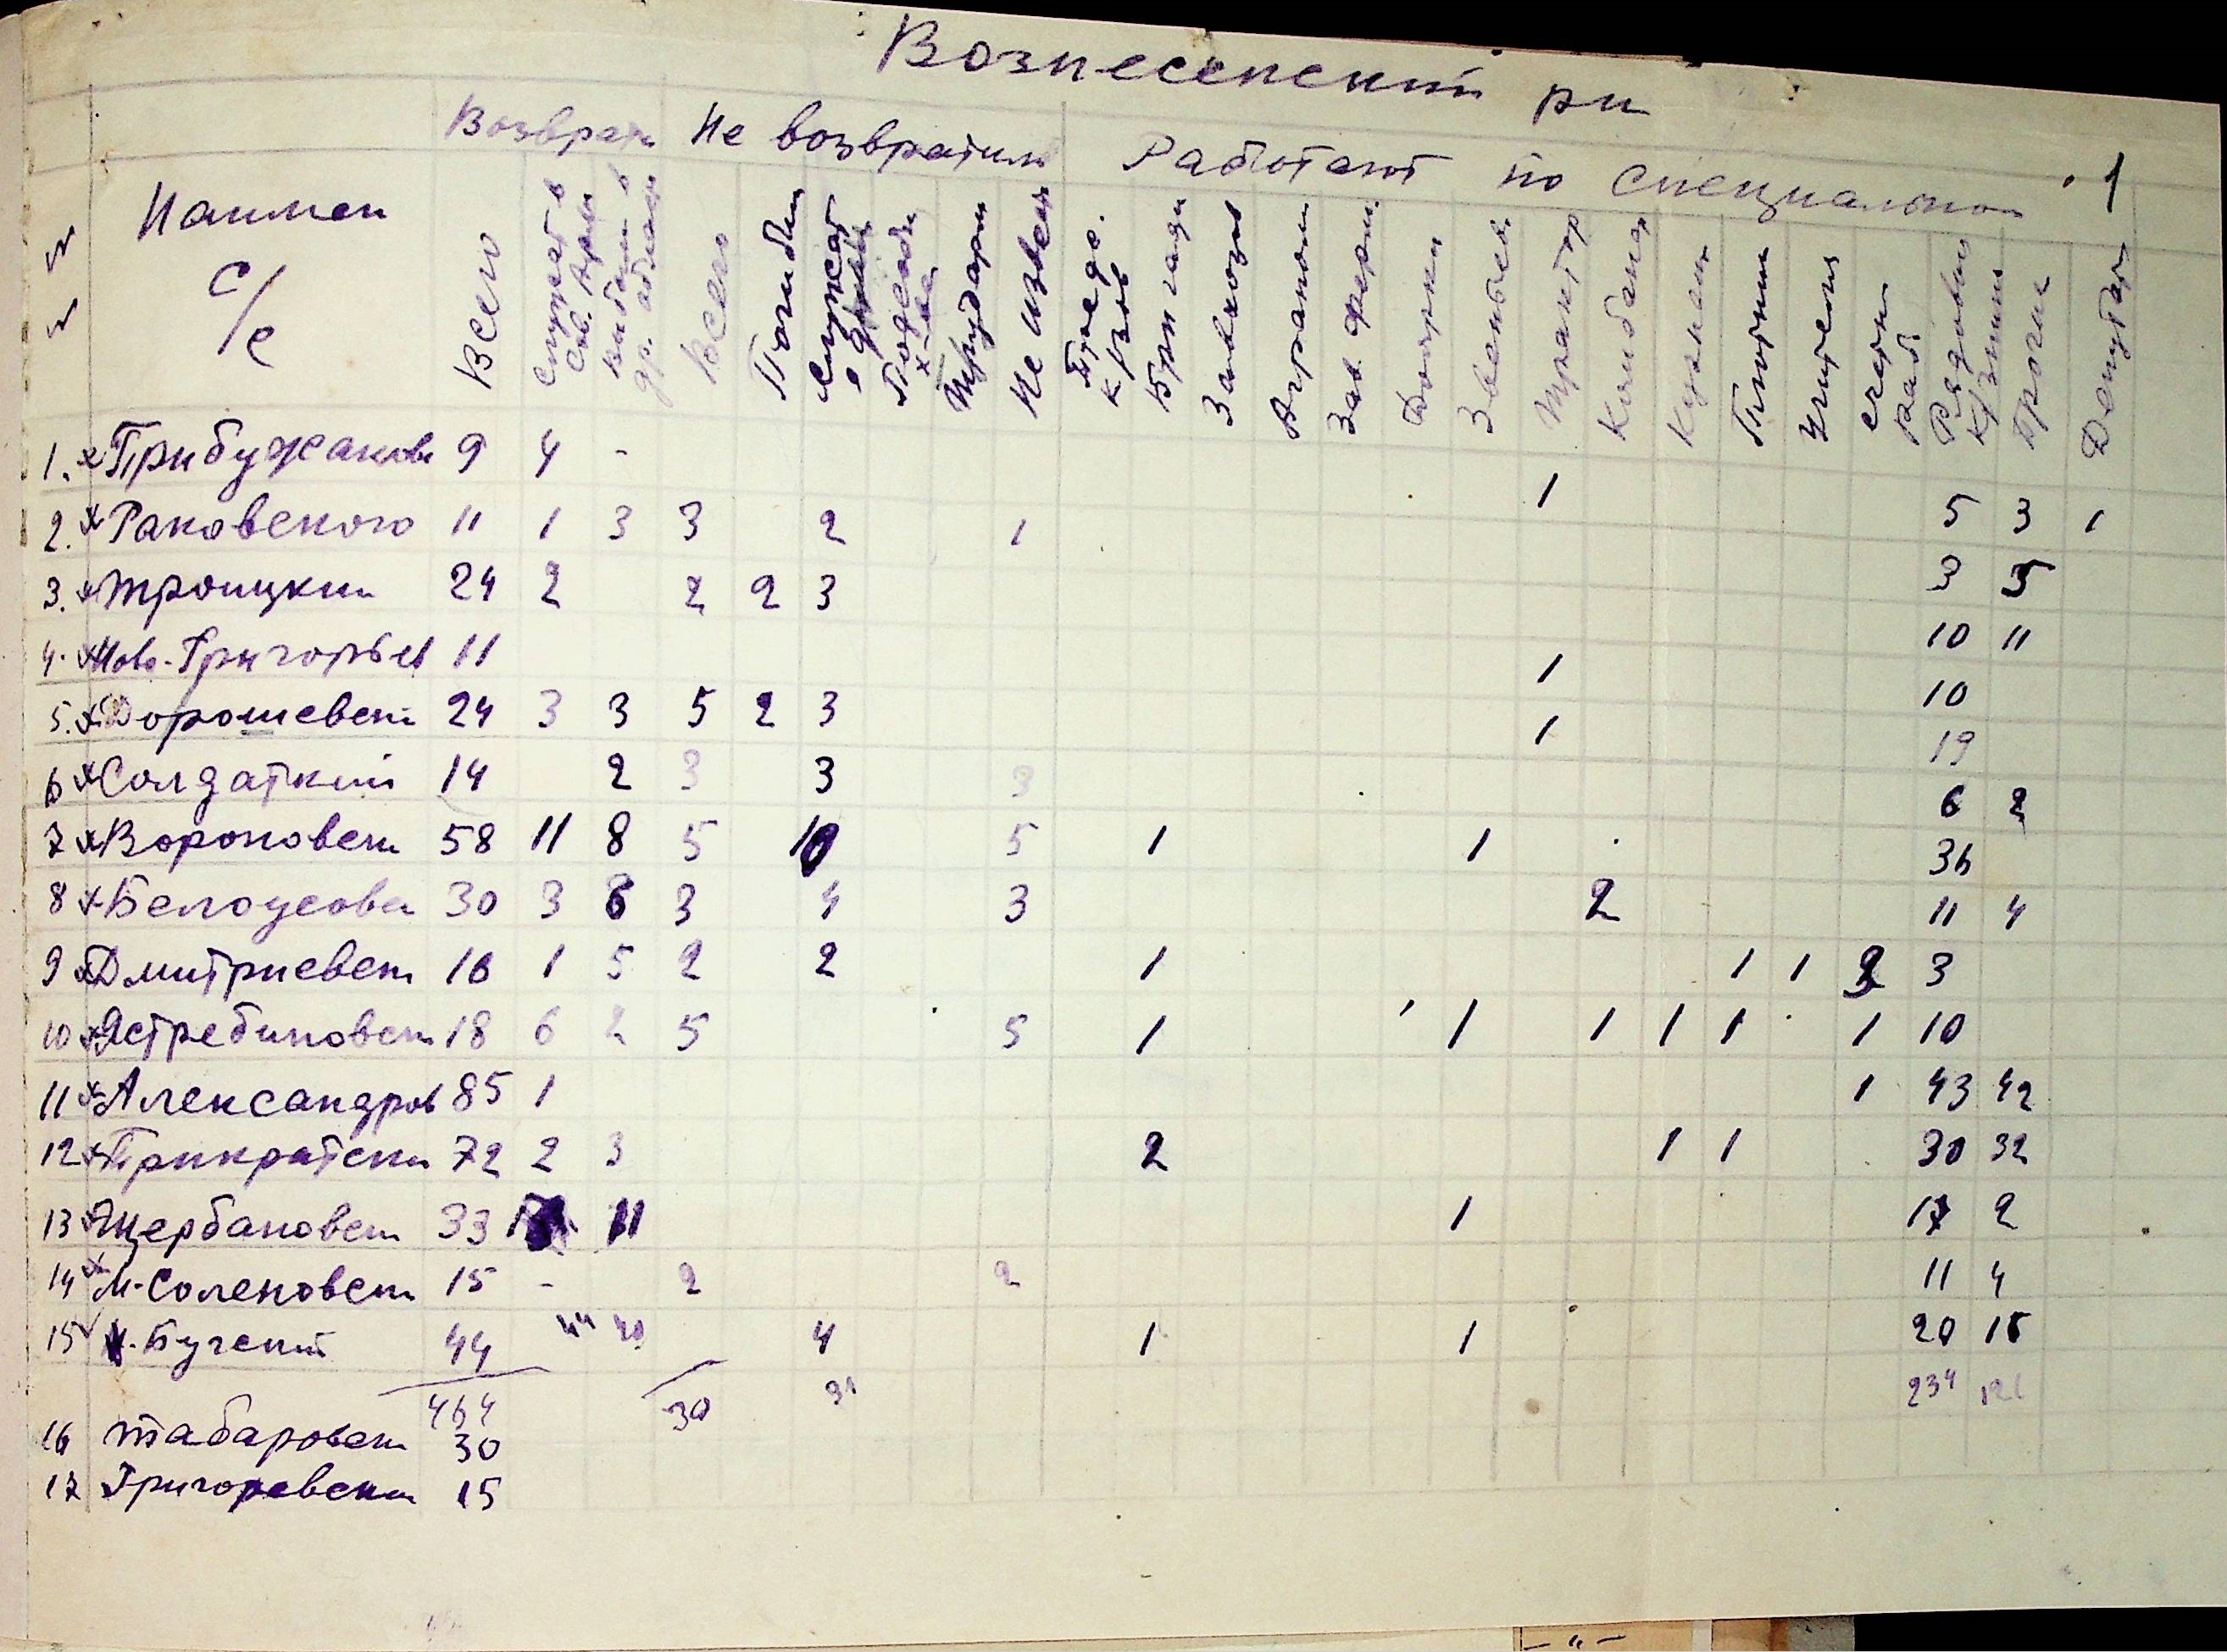 Вознесенский рн
Возврати Не возвратили Работают по специальнос 1
Наимен с/с
Всего
Служат в Сов. Арми
Выбыли в др. области
Всего
Погибли
Служат в армии
Подсобн х-ва
Не извест
Предс. к/зов
Бригади
Завхозы
Агрономы
Зав. ферм.
Доярки
Звеньев.
Трактор
Комбайнер
Кузнецы
Плотник
Учителя
Счетн. раб.
Рядовые к/зники
Прочие
Депутаты
1. х Прибужанов 9 4 - 1 5 3 1
2. х Раковского 11 1 3 3 2 1 3 5
3. х Троицкий 24 2 2 2 3 10 11
4. х Ново-Григорьев 11 1 10
5. х Дорошевск 24 3 3 5 2 3 1 19
6 х Солдатский 14 2 3 3 3 6 2
7 х Вороновск 58 11 8 5 10 5 1 1 36
8 х Белоусовск 30 3 6 3 4 3 2 11 4
9 х Дмитриевск 16 1 5 2 2 1 1 1 2 3
10 х Ястребиновск 18 6 2 5 5 1 1 1 1 1 1 10
11 х Александров 85 1 1 43 42
12 х Трикратски 72 2 3 2 1 1 30 32
13 х Щербановск 33 11 1 17 2
14 х М-Соленовск 15 - 2 2 11 4
15 Бугский 44 44 40 4 1 1 20 15
464 30 31 234 121
16 Табаровск 30
17 Григоревски 15